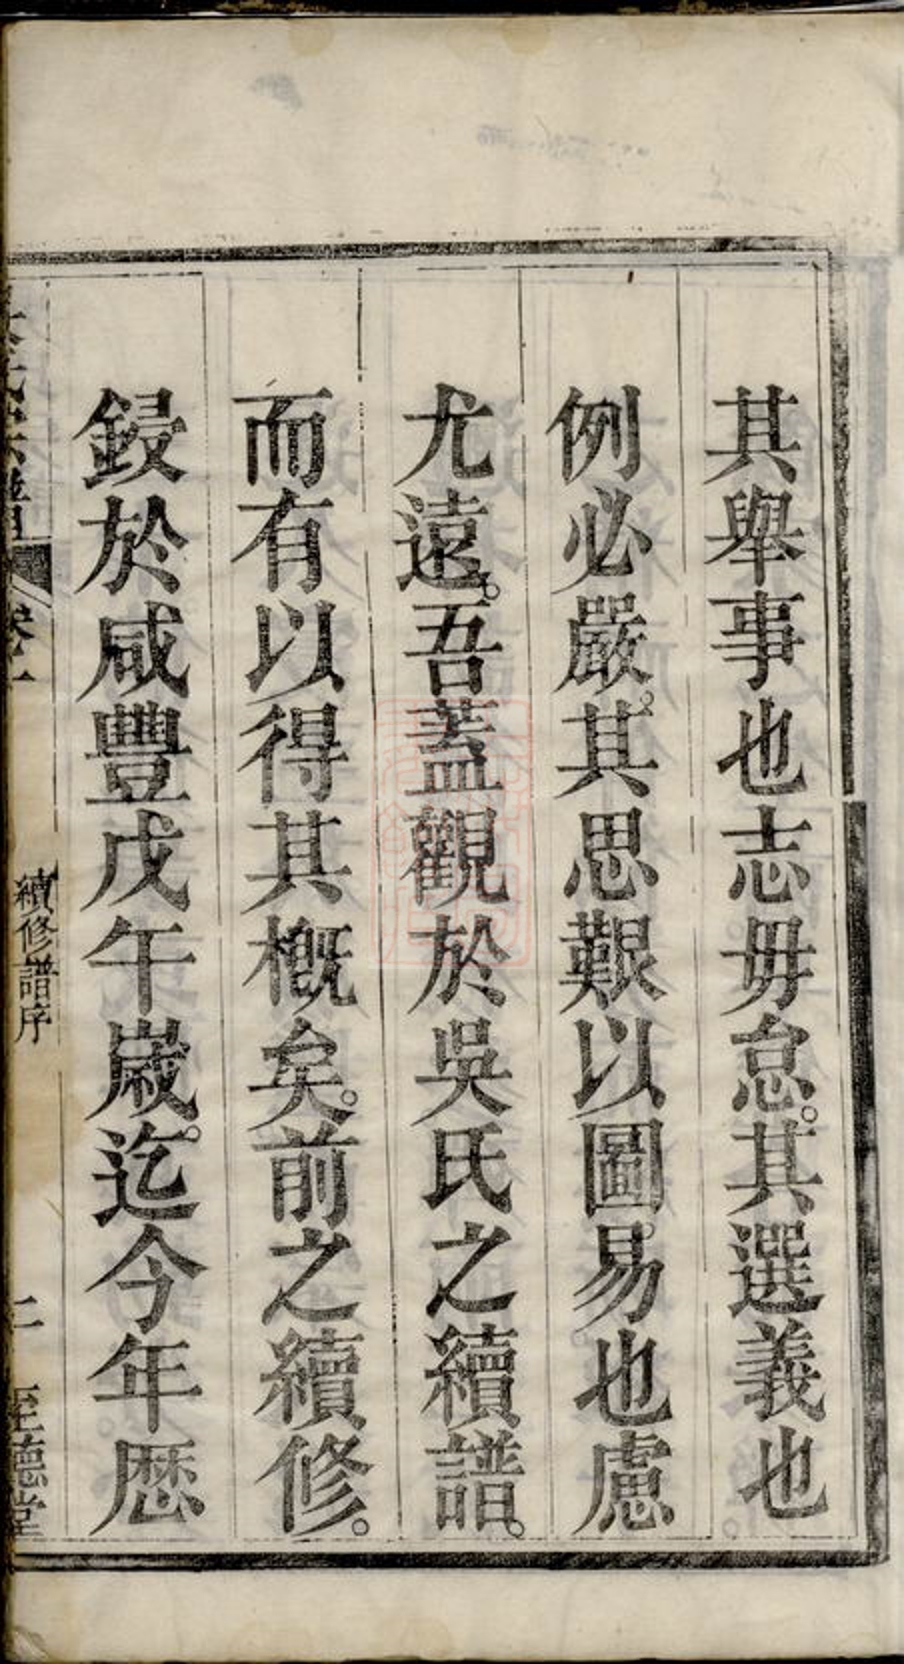 其舉事也志毋怠。其選義也
例必嚴。其思艱以圖易也慮
尤遠。吾蓋觀於吳氏之續譜。
而有以得其概矣。前之續修。
鋟於咸豐戊午歲。迄今年歴
氏宗譜 卷一 續修譜序 二 至德堂